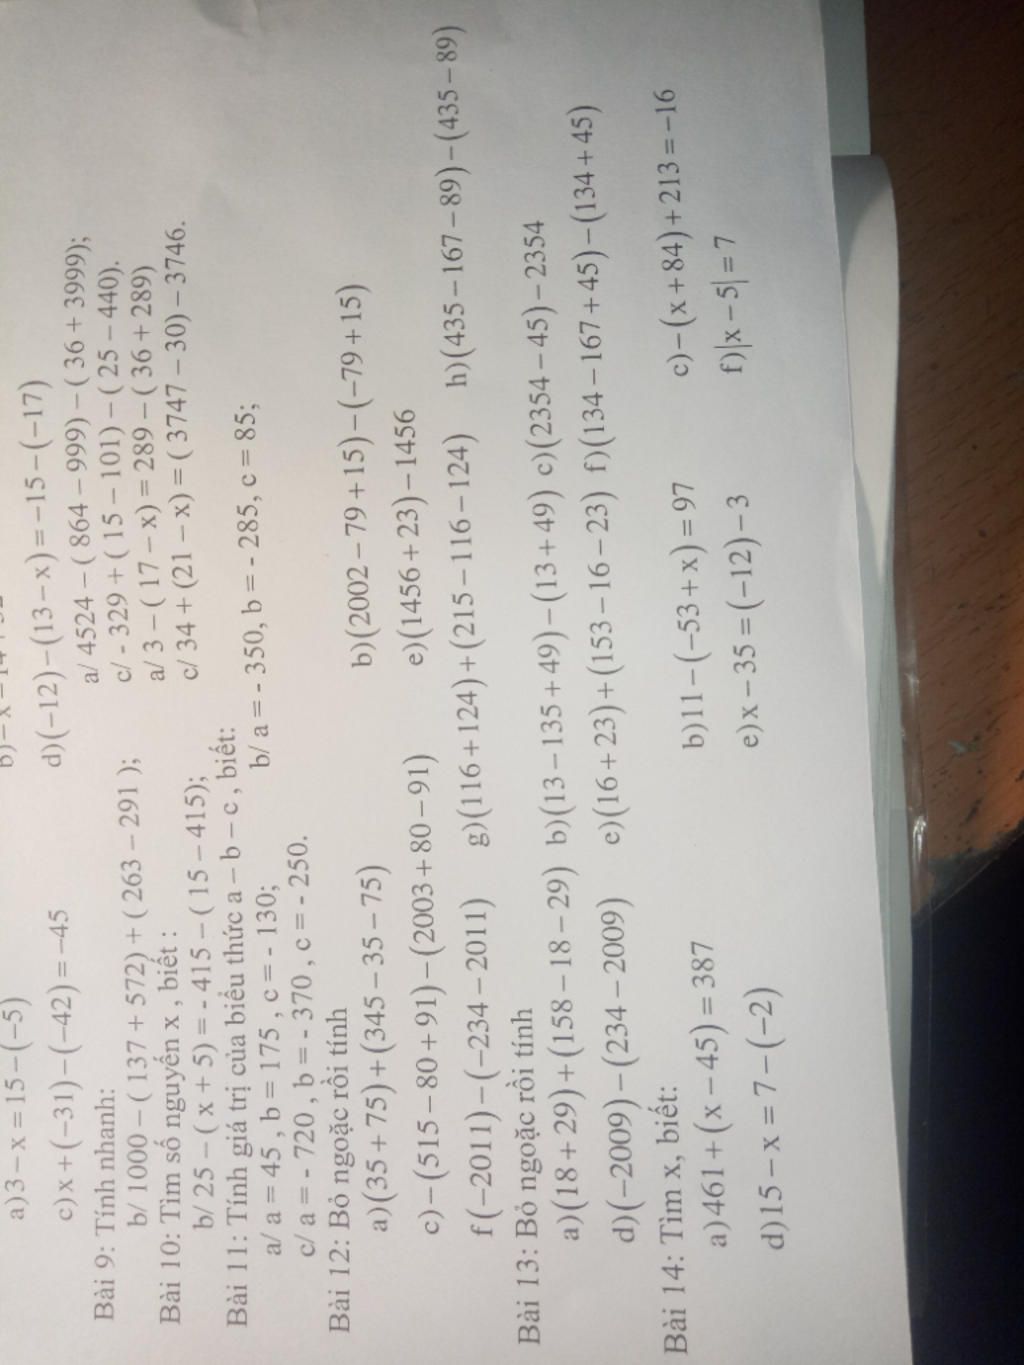 a) 3 – x = 15 – (–5)
c) x + (–31) – (–42) = –45 d) (–12) – (13 – x) = –15 – (–17)
Bài 9: Tính nhanh: a/ 4524 – ( 864 – 999) – ( 36 + 3999);
b/ 1000 – ( 137 + 572) + ( 263 – 291 ); c/ - 329 + ( 15 – 101) – ( 25 – 440).
Bài 10: Tìm số nguyên x , biết : a/ 3 – ( 17 – x) = 289 – ( 36 + 289)
b/ 25 – ( x + 5) = - 415 – ( 15 – 415); c/ 34 + (21 – x) = ( 3747 – 30) – 3746.
Bài 11: Tính giá trị của biểu thức a – b – c , biết:
a/ a = 45 , b = 175 , c = - 130; b/ a = - 350, b = - 285, c = 85;
c/ a = - 720 , b = - 370 , c = - 250.
Bài 12: Bỏ ngoặc rồi tính
a) (35 + 75) + (345 – 35 – 75) b) (2002 – 79 + 15) – (–79 + 15)
c) – (515 – 80 + 91) – (2003 + 80 – 91) e) (1456 + 23) – 1456
f (–2011) – (–234 – 2011) g) (116 + 124) + (215 – 116 – 124) h) (435 – 167 – 89) – (435 – 89)
Bài 13: Bỏ ngoặc rồi tính
a) (18 + 29) + (158 – 18 – 29) b) (13 – 135 + 49) – (13 + 49) c) (2354 – 45) – 2354
d) (–2009) – (234 – 2009) e) (16 + 23) + (153 – 16 – 23) f) (134 – 167 + 45) – (134 + 45)
Bài 14: Tìm x, biết:
a) 461 + (x – 45) = 387 b) 11 – (–53 + x) = 97 c) – (x + 84) + 213 = –16
d) 15 – x = 7 – (–2) e) x – 35 = (–12) – 3 f) |x – 5| = 7